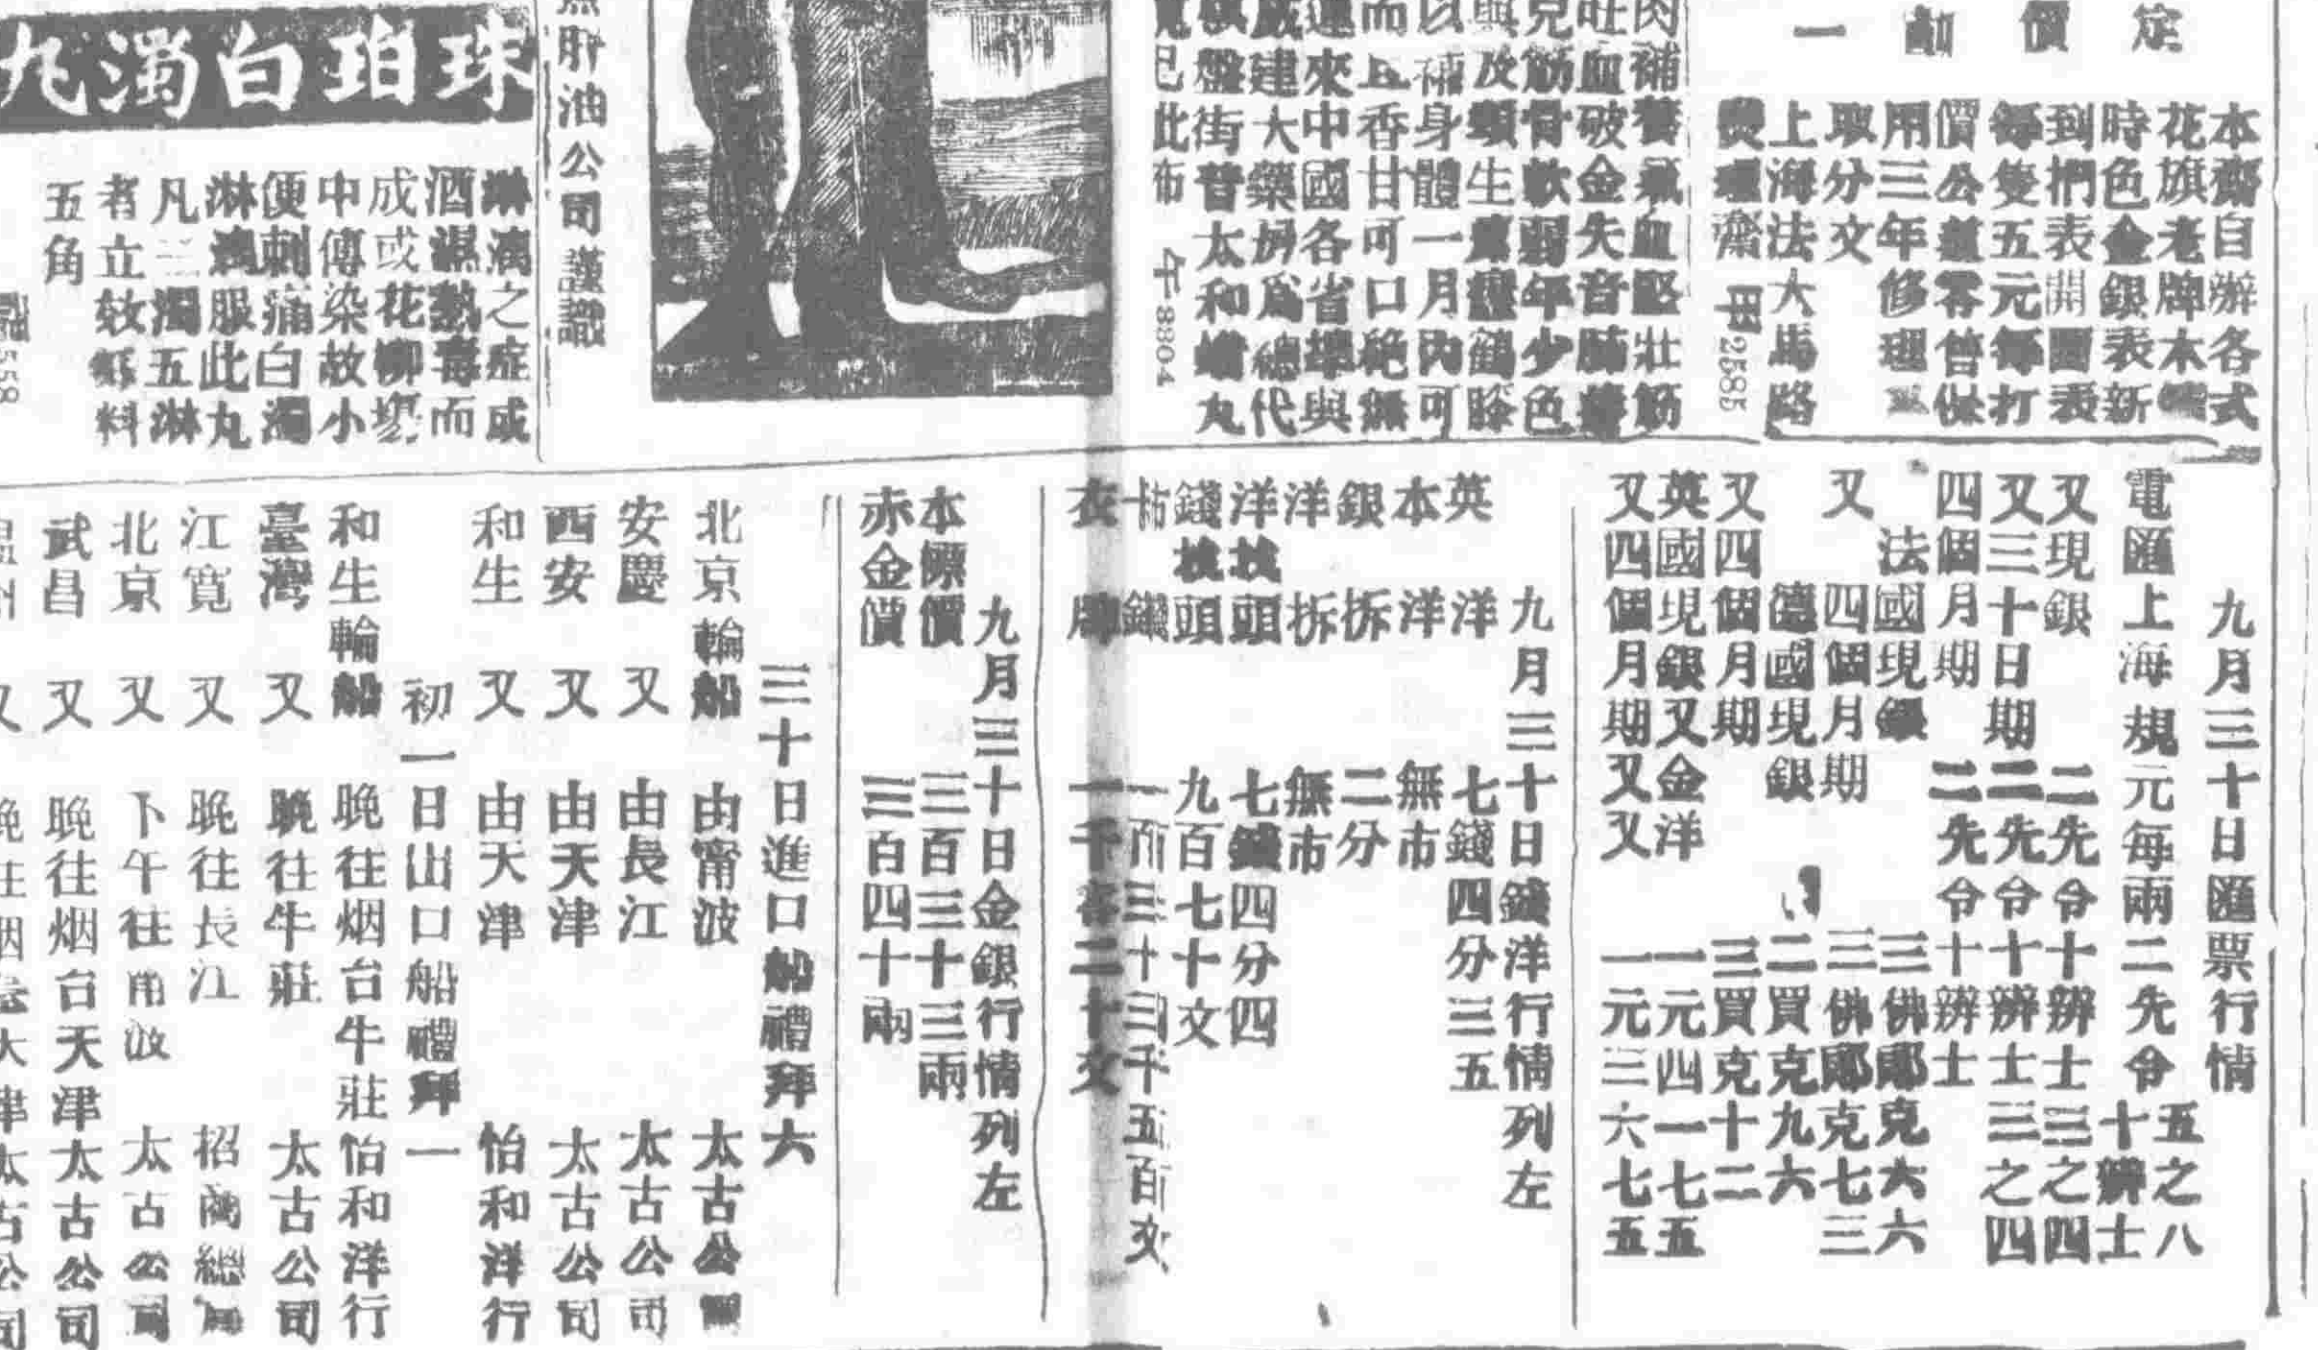 定價劃一
本齋自辦各式
花旗老牌木
時色金銀表新
到捫表開面表
每隻五元每打
價公道零躉
用三年修理
取分文
上海法大馬路
甲2585
肉補養氣血堅壯筋
旺血破金失音肺
克筋骨軟弱年少色
與及頸生鶴膝
以補身體一月內可
而且香甘可口絕無
運來中國各省埠與
建大藥房為總代
盤街普太和蠟丸
此布
午8804
魚肝油公司謹識
珠珀白濁丸
淋濁之症或
酒濕熱毒而
成或花柳
中傳染故小
便刺痛白濁
淋濁服此丸
凡三濁五淋
者立效每料
五角
558
九月三十日匯票行情
電匯上海規元每兩二先令十辨士五之八
又現銀 二先令十辨士三之四
又三十日期 二先令十辨士三之四
四個月期 二先令十辨士
法國現銀 三佛郎克六六
又四個月期 三佛郎克七三
德國現銀 二買克九六
又四個月期 三買克十二
英國現銀又金洋 一元四一七五
又四個月期又又 一元三六七五
九月三十日錢洋行情列左
英洋 七錢四分三五
本洋 無市
銀拆 二分
洋拆 無市
洋找頭 七錢四分四
錢找頭 九百七十文
衣牌
九月三十日金銀行情列左
本標價 三百三十三兩
赤金價 三百四十兩
三十日進口船禮拜六
北京輪船 由甯波 太古公司
安慶 又 由長江 太古公司
西安 又 由天津 太古公司
和生 又 由天津 怡和洋行
初一日出口船禮拜一
和生輪船 晚往烟台牛莊 怡和洋行
臺灣 又 晚往牛莊 太古公司
江寬 又 晚往長江 招商總局
北京 又 下午往甯波 太古公司
武昌 又 晚往烟台天津 太古公司
又 晚往烟台天津 太古公司